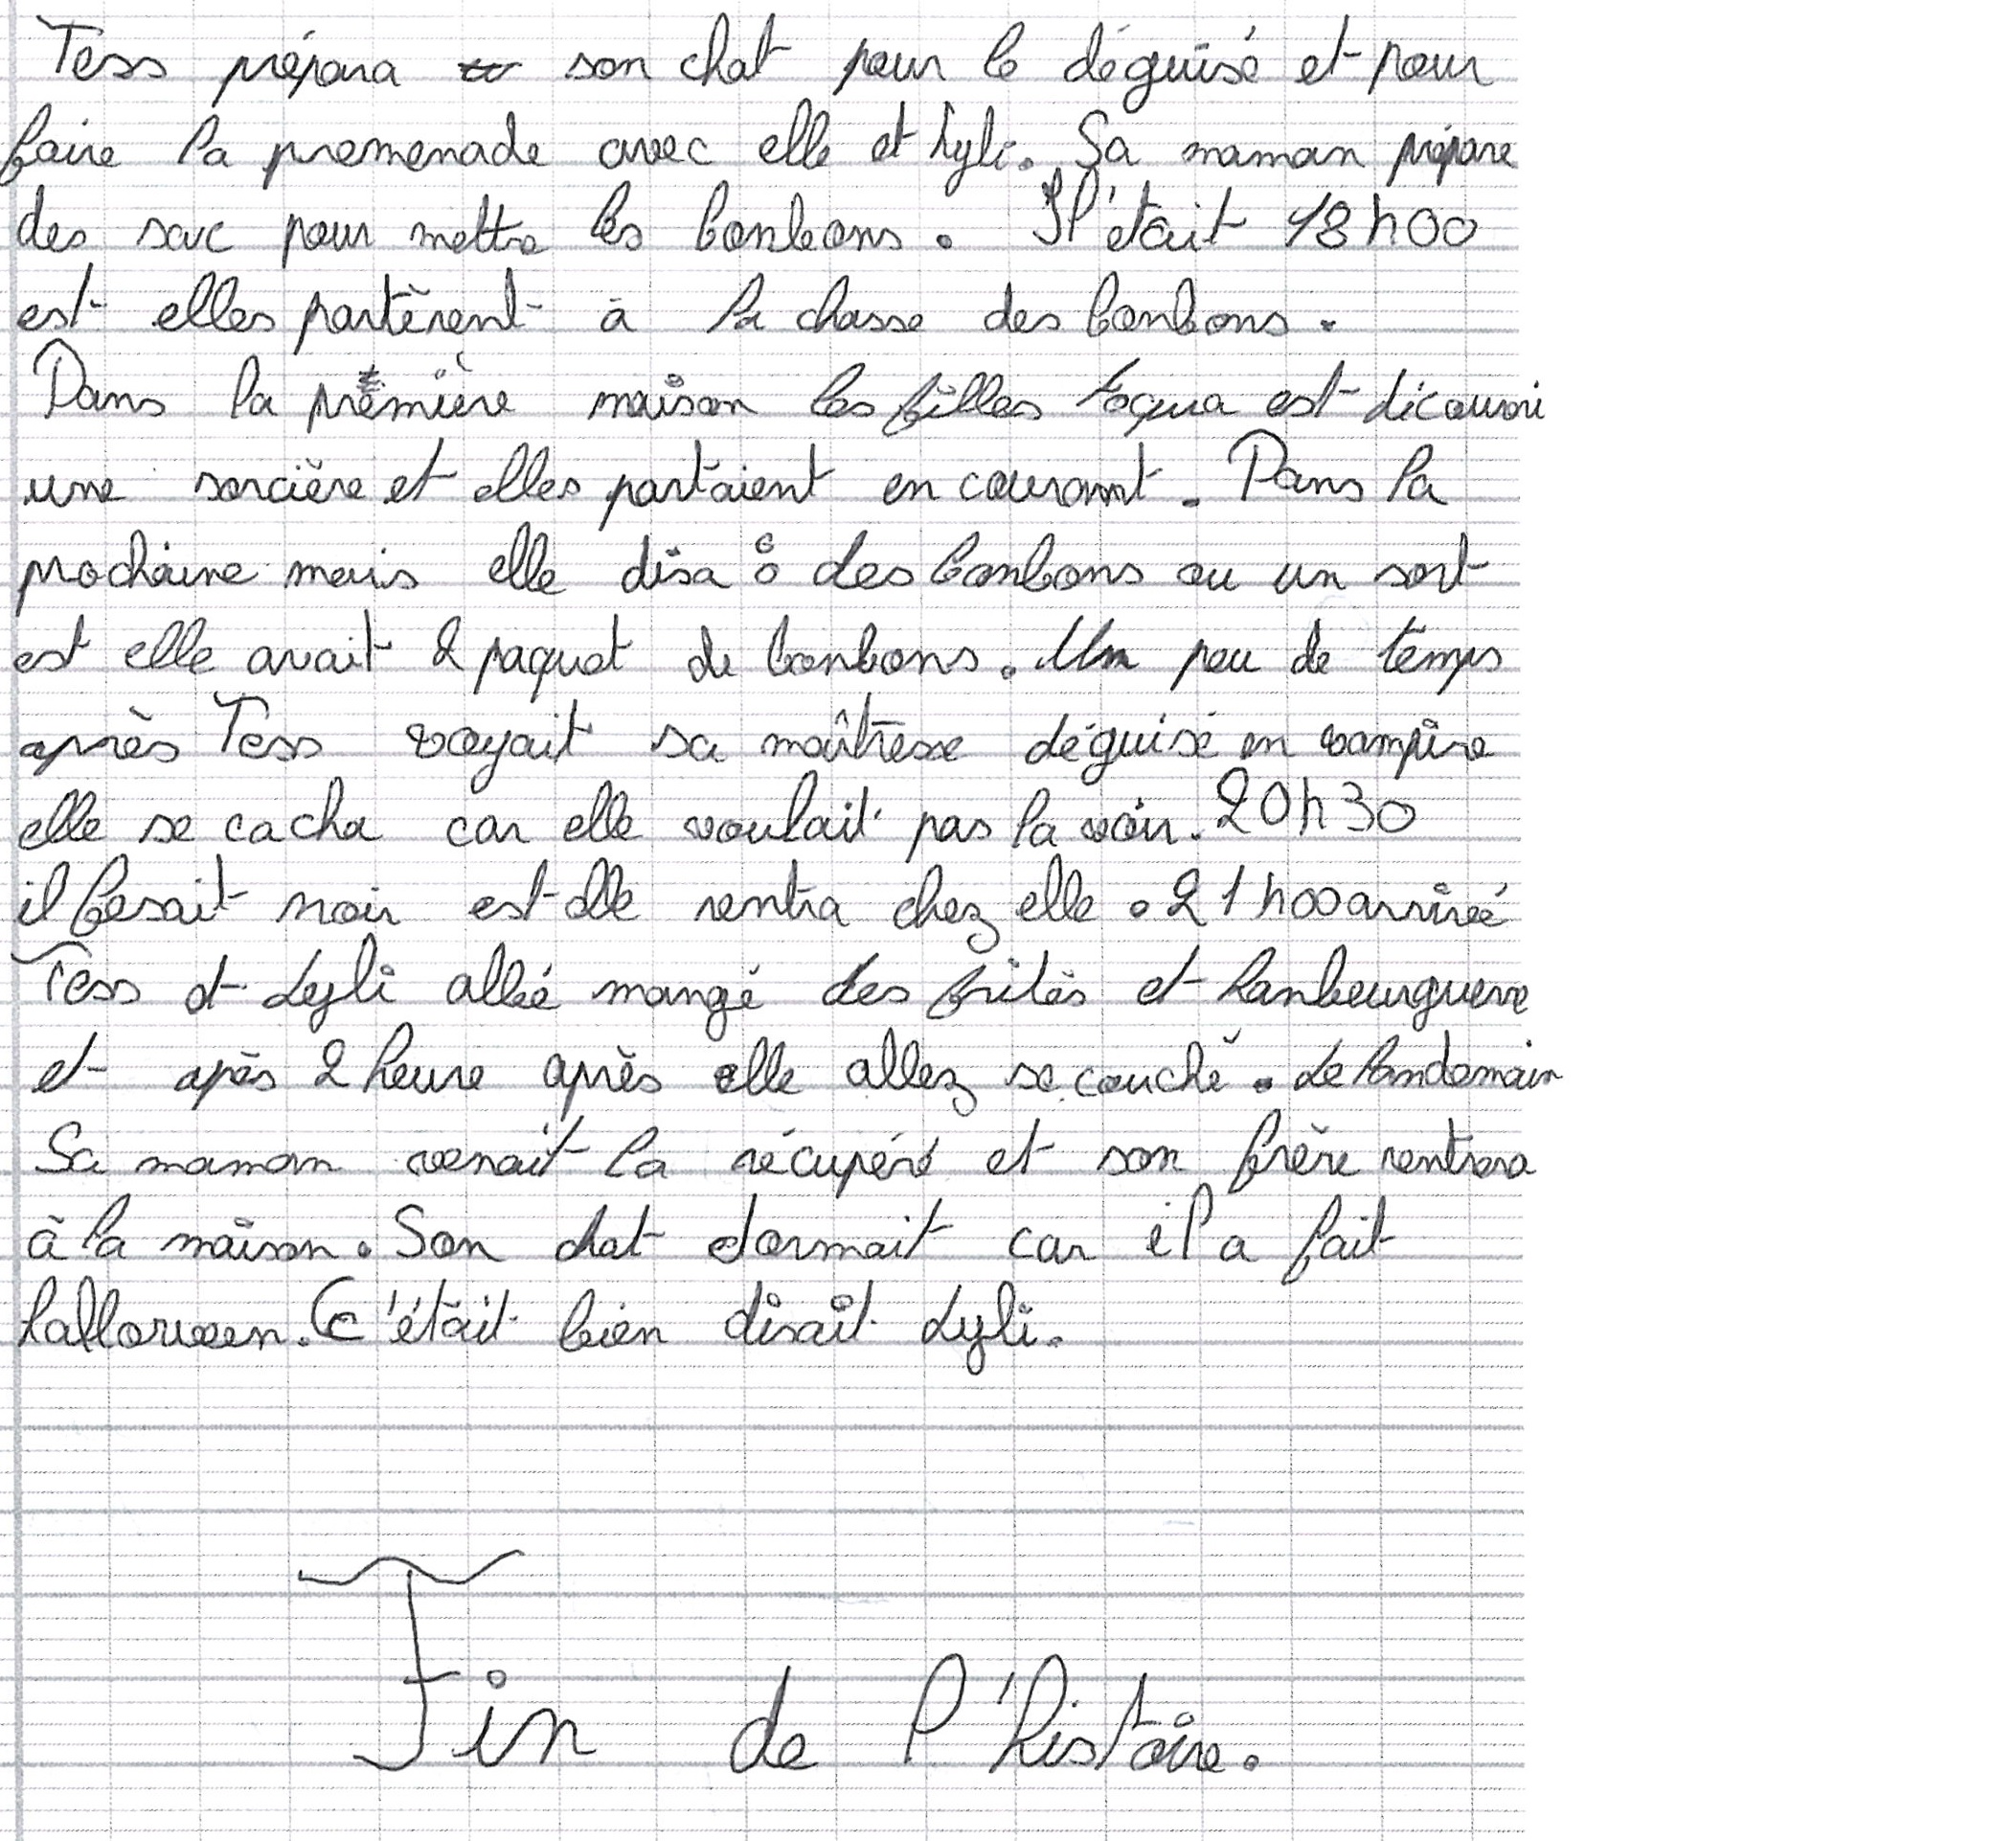 Tess prépara son chat pour le déguisé et pour
faire la promenade avec elle et Lyli. Sa maman prépare
des sac pour mettre les bonbons. Il'était 18h00
est elles partèrent à la chasse des bonbons.
Dans la première maison les filles toqua est dicouvri
une sorcière et elles partaient en courant. Dans la
prochaine mais elle disa : des bonbons ou un sort
est elle avait 2 paquet de bonbons. Un peu de temps
après Tess voyait sa maîtresse déguisé en vampire
elle se cacha car elle voulait pas la voir. 20h30
il fesait noir est elle rentra chez elle. 21h00 arriveé
Tess et Lyli alleé mangé des frites et hanbeurguere
et apès 2 heure après elle allez se couché. Le landemain
Sa maman venait la récupéré et son frère rentrera
à la maison. Son chat dormait car il a fait
hallorween. C'était bien disait Lyli.
Fin de l'histoire.